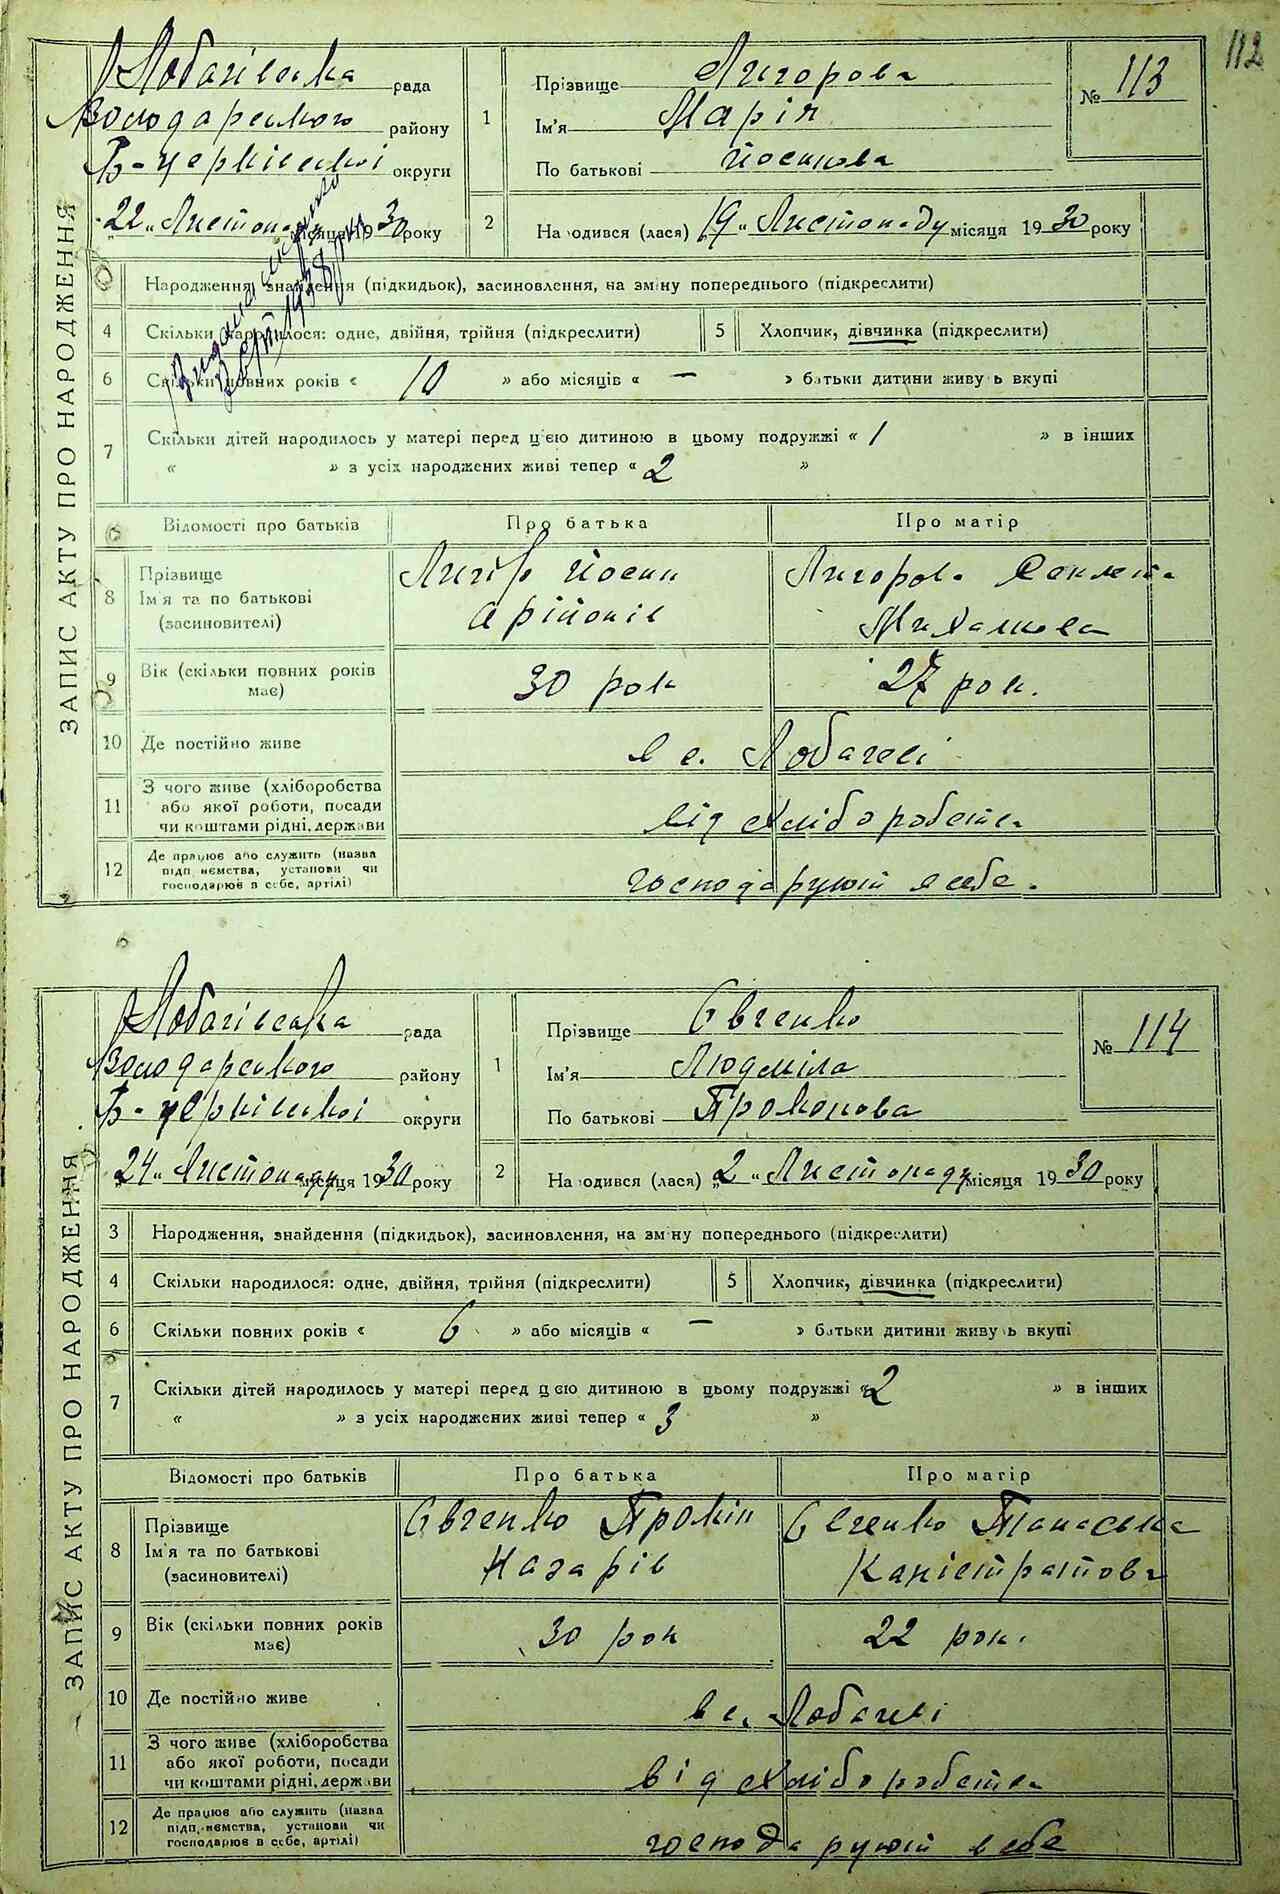 112
ЗАПИС АКТУ ПРО НАРОДЖЕННЯ
Лобачівська рада
Володарського району
Б-церківської округи
"22" Листопаду місяця 1930 року
1
Прізвище Лигорова
Ім'я Марія
По батькові Йосипова
№ 113
2
Народився (лася) "19" Листопаду місяця 1930 року
Народження, знайдення (підкидьок), засиновлення, на зміну попереднього (підкреслити)
4 Скільки народилося: одне, двійня, трійня (підкреслити)
5 Хлопчик, дівчинка (підкреслити)
6 Скільки повних років « 10 » або місяців « — » батьки дитини живуть вкупі
7 Скільки дітей народилось у матері перед цією дитиною в цьому подружжі « 1 » в інших
« » з усіх народжених живі тепер « 2 »
Відомості про батьків Про батька Про матір
8 Прізвище
Ім'я та по батькові
(засиновителі)
Лигір Йосип
Лигорова
9 Вік (скільки повних років має)
30 рок
27 рок.
10 Де постійно живе
в с. Лобачеві
11 З чого живе (хліборобства
або якої роботи, посади
чи коштами рідні, держави
від хліборобства
12 Де працює або служить (назва
підприємства, установи чи
господарює в себе, артілі)
господарують в себе.
ЗАПИС АКТУ ПРО НАРОДЖЕННЯ
Лобачівська рада
Володарського району
Б-церківської округи
"24" Листопаду місяця 1930 року
1
Прізвище Євченко
Ім'я Людміла
По батькові Прокопова
№ 114
2
Народився (лася) "2" Листопаду місяця 1930 року
3 Народження, знайдення (підкидьок), засиновлення, на зміну попереднього (підкреслити)
4 Скільки народилося: одне, двійня, трійня (підкреслити)
5 Хлопчик, дівчинка (підкреслити)
6 Скільки повних років « 6 » або місяців « — » батьки дитини живуть вкупі
7 Скільки дітей народилось у матері перед цією дитиною в цьому подружжі « 2 » в інших
« » з усіх народжених живі тепер « 3 »
Відомості про батьків Про батька Про матір
8 Прізвище
Ім'я та по батькові
(засиновителі)
Євченко Прокіп
Назарів
Євченко Танаська
Каністратова
9 Вік (скільки повних років має)
30 рок
22 рок.
10 Де постійно живе
в с. Лобачеві
11 З чого живе (хліборобства
або якої роботи, посади
чи коштами рідні, держави
від хліборобства
12 Де працює або служить (назва
підприємства, установи чи
господарює в себе, артілі)
господарують в себе